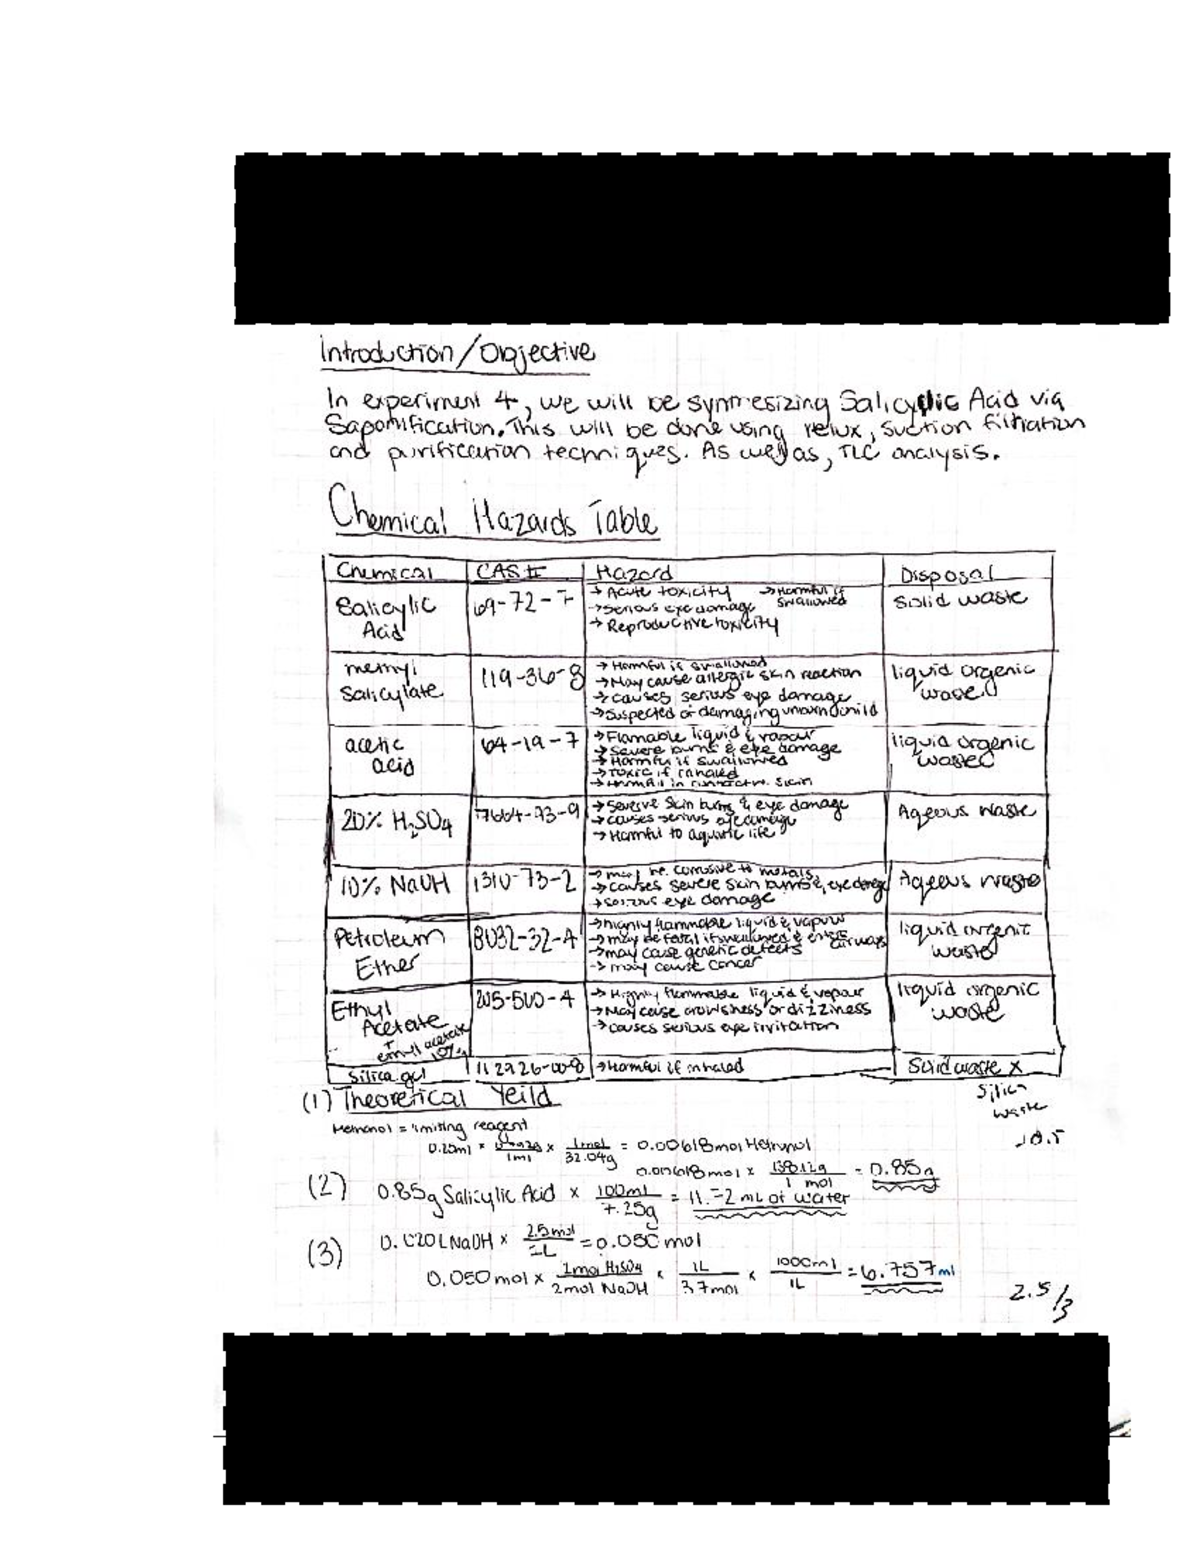 Introduction/Objective
In experiment 4, we will be synthesizing Salicylic Acid via
Saponification. This will be done using relux, suction filtration
and purification techniques. As well as, TLC analysis.
Chemical Hazards Table
Chemical CAS # Hazard Disposal
Salicylic Acid 69-72-7 solid waste
→ Acute toxicity → Harmful if swallowed
→ Serious eye damage
→ Reproductive toxicity
methyl Salicylate 119-36-8 liquid organic waste
→ Harmful if swallowed
→ May cause allergic skin reaction
→ causes serious eye damage
→ Suspected of damaging unborn child
acetic acid 64-19-7 liquid organic waste
→ Flamable liquid & vapour
→ Severe burns & eye damage
→ Harmful if swallowed
→ Toxic if inhaled
→ Harmful in skin
20% H₂SO₄ 7664-93-9 Aqeous waste
→ Skin burns & eye damage
→ causes serious eye damage
→ Harmful to aquatic life
10% NaOH 1310-73-2 Aqeous waste
→ may be corrosive to metals
→ causes severe skin burns & eye damage
→ serious eye damage
Petroleum Ether 8032-32-4 liquid organic waste
→ highly flammable liquid & vapour
→ may be fatal if swallowed & enters airways
→ may cause genetic defects
→ may cause cancer
Ethyl Acetate 205-500-4 liquid organic waste
+ ethyl acetate 10%
→ Highly flammable liquid & vapour
→ May cause drowsness or dizziness
→ causes serious eye irritation
Silica gel 112926-00-8 → Harmful if inhaled Solid waste X
Silica waste
-0.5
(1) Theoretical Yeild
Methanol = limiting reagent
0.25ml × 1ml × 1mol 32.04g = 0.00618mol Methanol
0.00618mol × 138.12g 1 mol = 0.85g
(2) 0.85g Salicylic Acid × 100ml 7.25g = 11.72 mL of water
(3) 0.020L NaOH × 2.5mol 1L = 0.050 mol
0.050 mol × 1mol H₂SO₄ 2mol NaOH × 1L 3.7mol × 1000ml 1L = 6.757ml
2.5/3